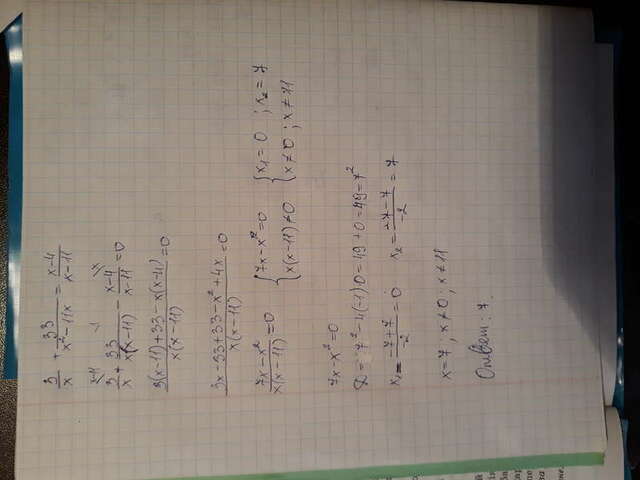 3/x + 33/(x²-11x) = (x-4)/(x-11)
3/x + 33/(x(x-11)) - (x-4)/(x-11) = 0
(3(x-11)+33-x(x-4))/(x(x-11)) = 0
(3x-33+33-x²+4x)/(x(x-11)) = 0
(7x-x²)/(x(x-11)) = 0 { 7x-x²=0 { x₁=0 ; x₂=7
x(x-11)≠0 x≠0 ; x≠11
7x-x²=0
D = 7²-4(-1)0=49+0=49=7²
x₁= (-7+7)/(-2) = 0 x₂= (-7-7)/(-2) = 7
x=7 ; x≠0 ; x≠11
Ответ: 7.